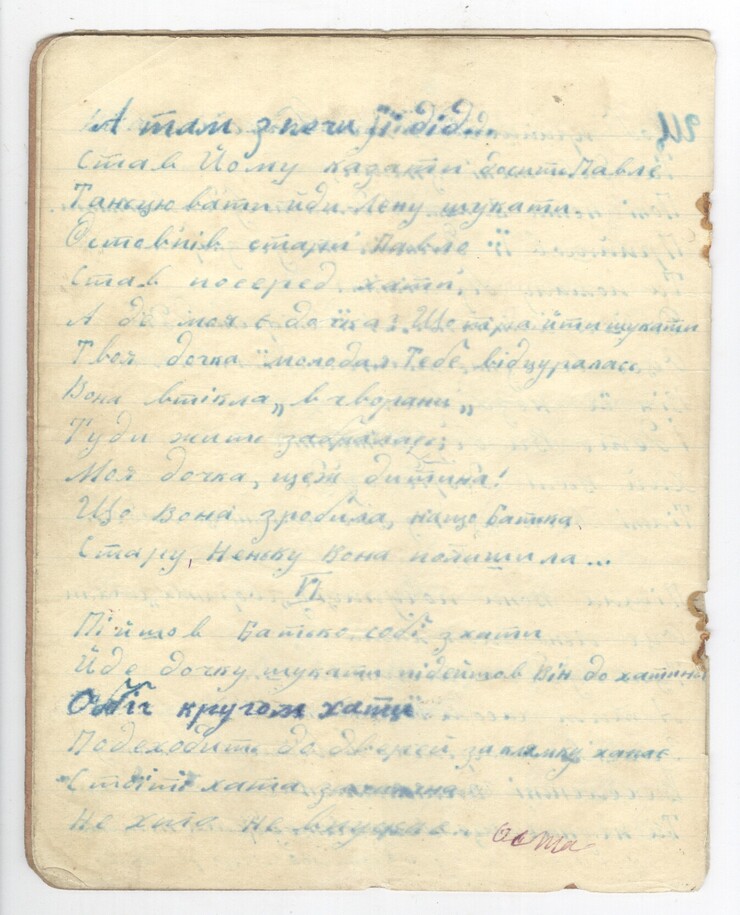 А там з печи її дід...
Став Йому казати досить Павле
Танцювати йди Лену шукати
Остовпів старий Павло
Став посеред хати,
А де моя є дочка? Що треба йти шукати
Твоя дочка молодая Тебе відцуралась
Вона втікла „в чворани„
Туди жить забралась;
Моя дочка, щеж дитина!
Що Вона зробила, нащо Батька
Стару, Неньку Вона полишила...
VI
Пійшов Батько собі з хати
Йде дочку шукати підейшов Він до хатини
Оббіг кругом хати
Подеходить до дверей за клямку хапає
Стоїть хата
Не хито не